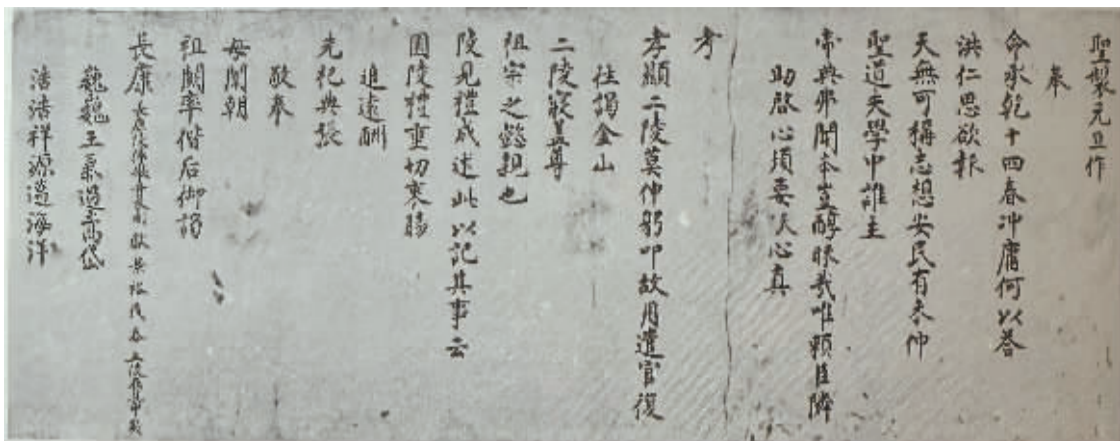 聖製元旦作
奉
命承乾十四春冲庸何以答
洪仁思欲報
天無可稱志想安民有未伸
聖道夫學中誰主
帝典弗聞本豈醇眇我唯賴臣隣
助啟心須要沃心真
孝
孝顯二陵莫伸躬叩故月遣官復
往謁金山
二陵寢蓋尊
祖宗之懿親也
陵見禮成述此以記其事云
園陵禮重切衷腸
追遠酬
先祀典張
敬奉
母闈朝
祖闕率偕后御謁
長康
巍巍王氣過嵩岱
浩浩祥源邁海洋